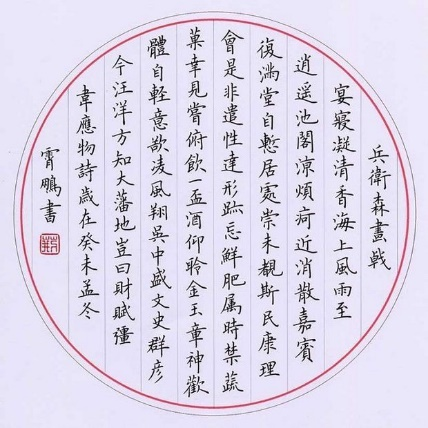 兵衛森畫戟
宴寢凝清香海上風雨至
逍遥池閣涼煩疴近消散嘉賓
復滿堂自慙居處崇未覩斯民康理
會是非遣性達形跡忘鮮肥属時禁蔬
菓幸見嘗俯飲一盃酒仰聆金玉章神歡
體自輕意欲凌風翔吳中盛文史群彦
今汪洋方知大藩地豈曰財賦疆
韋應物詩歲在癸未孟冬
霄鵬書